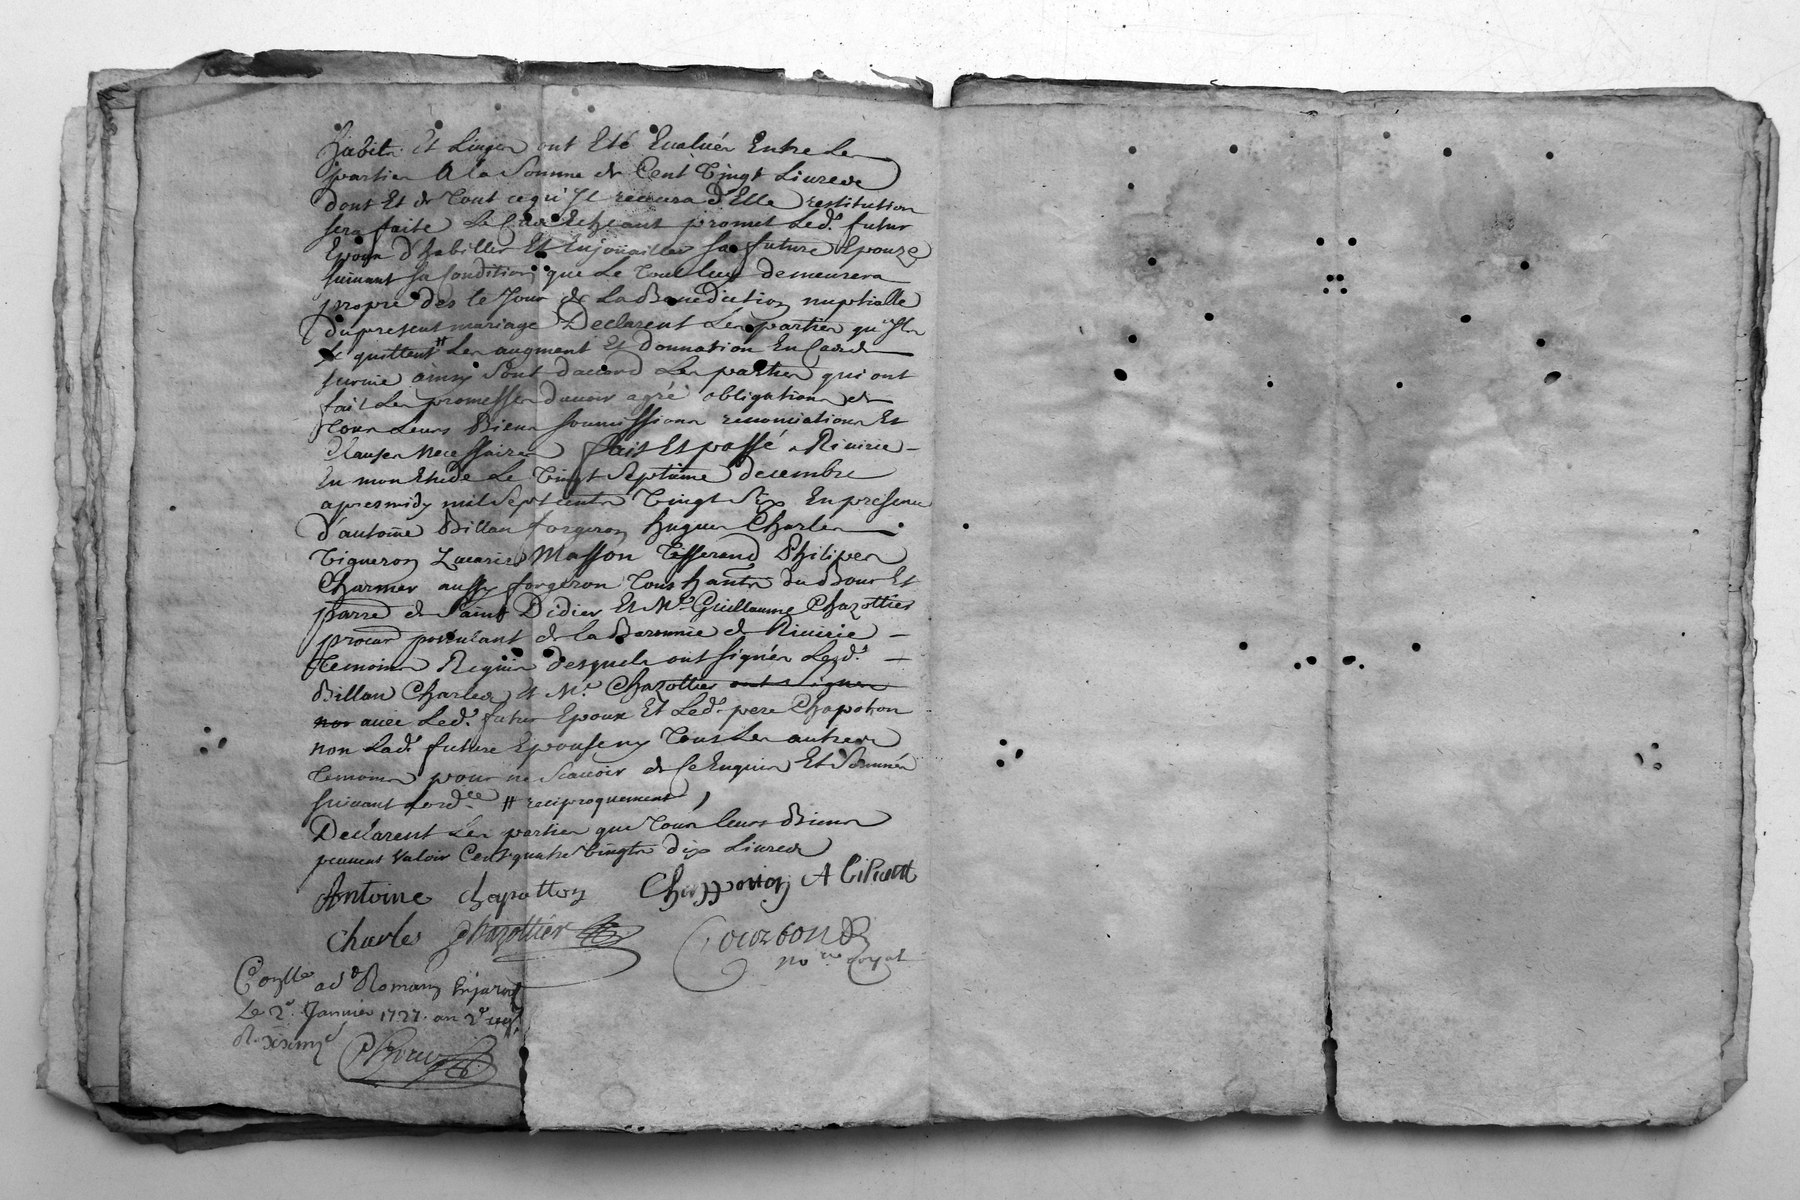 habits et Linges ont Eté Evalués Entre Les
parties A la Somme de Cent Vingt Livres
dont Et de Tout cequ'Il recevra d'Elle restitution
sera faite Le Cas Echeant promet Led. futur
Epoux d'habiller Et Enjoüailler sa future Epouze
suivant sa Condition que Le Tout luy demeurera
propre des le Jour de La Benediction nuptialle
du present mariage Declarent Les parties qu'Ils
se quittent # Les augment Et donnation En Cas de
survie ainsy Sont d'accord Les parties qui ont
fait Les promesses d'avoir agré obligation de
Tous Leurs Biens soumissions renonciations Et
Clauses Necessaires fait Et passé a Riverie
En mon Etude Le Vingt Septieme decembre
apresmidy mil Sept cents Vingt Six En presence
d'antoine Billan forgeron hugues Charles
Vigneron Zacarie Masson Tisserand Philipes
Charmer aussy forgeron Tous hants du Bour Et
parre de Saint Didier Et Mre Guillaume Chazottier
procur postulant de la Baronnie de Riverie
Temoins Requis desquels ont signés Lesd.
Billan Charles et Mre Chazottier ont signer
non avec Led. futur Epoux Et Led. pere Chapoton
non Lad. future Epouse ny Tous Les autres
Temoins pour ne Scavoir de Ce Enquis Et Sommés
suivant Lordce # reciproquement
Declarent Les parties que Tous leurs Biens
peuvent Valoir Cent quatre Vingts dix Livres
Antoine chapotton Chapponton A
Charles Chazottier Courbon
nore Royal
Conllé a St Romain En jarest
Le 2e Janvier 1727